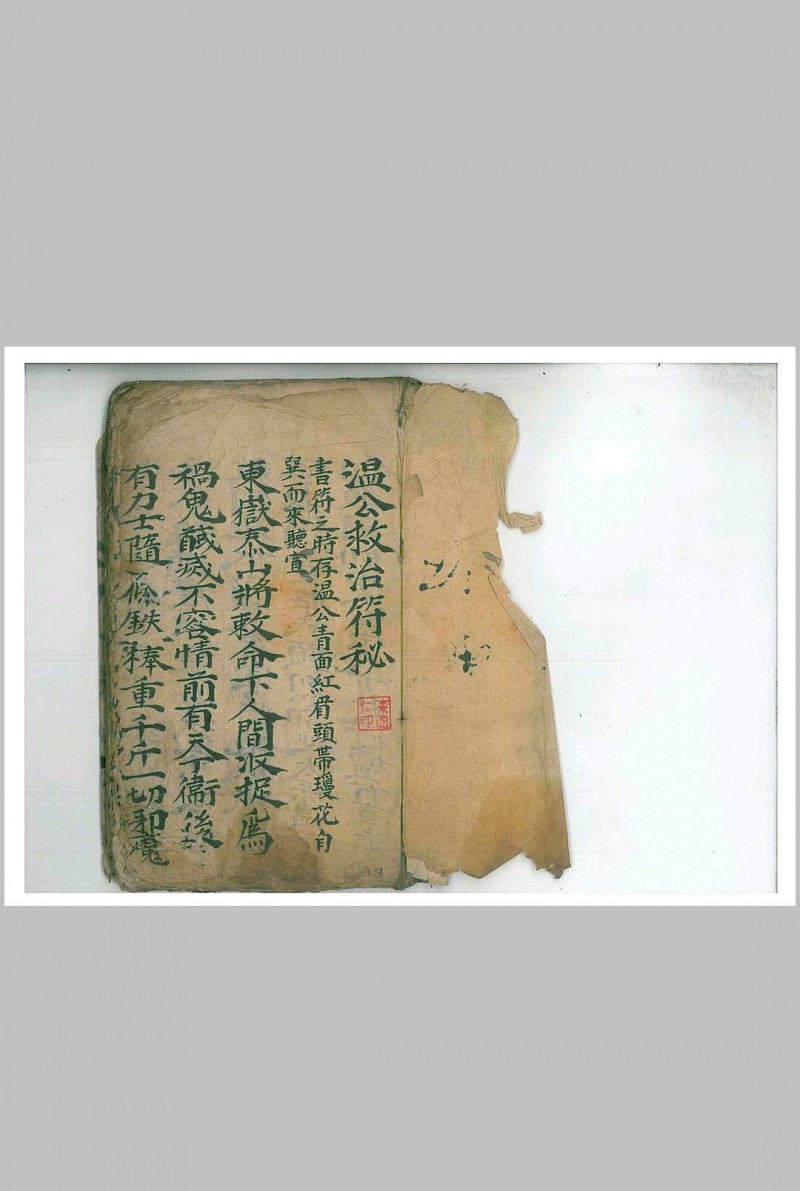 温公救治符秘
書符之時存温公青面紅眉頭帶瓊花自
巽而來聽宣
東嶽泰山將敕命下人間收捉爲
禍鬼馘滅不容情前有天丁衛後
有力士隨鉄棒重千斤一切邪魔
仁印